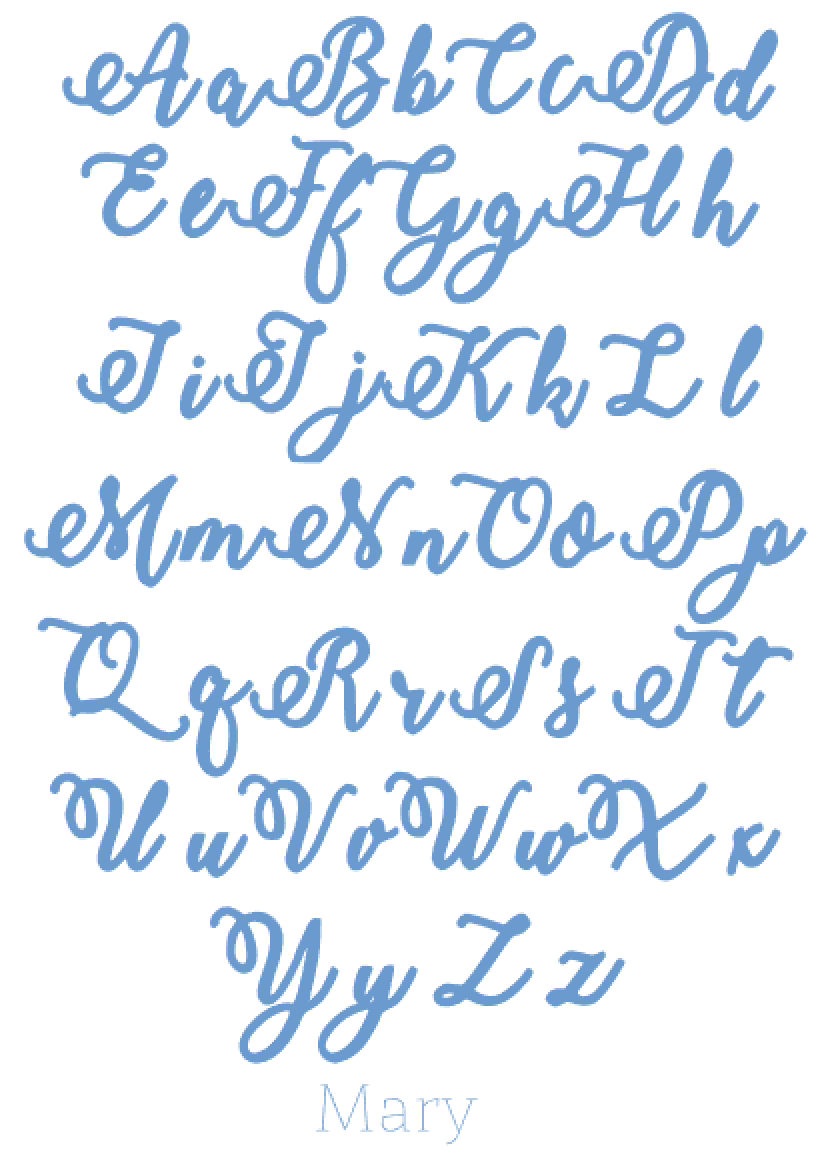 AaBbCcDd
EeFfGgHh
IiJjKkLl
MmNnOoPp
QqRrSsTt
UuVvWwXx
YyZz
Mary